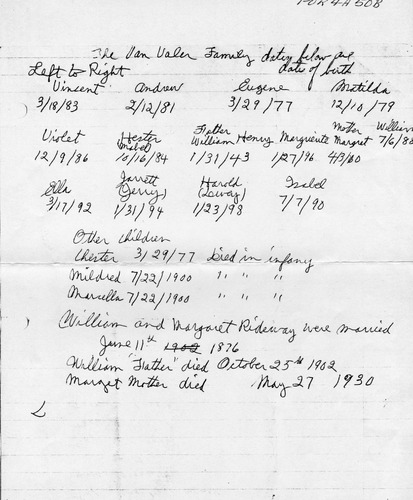 The Van Valer Family dates below are
Left to Right date of birth
Vinsent Andrew Eugene Matilda
3/18/83 2/12/81 3/29/77 12/10/79
Violet Hester Mabel Father William Henry Marguerite Mother Margret William
12/9/86 10/16/84 1/31/43 1/27/96 4/3/60 7/6/80
Ella Jarrett (Jerry) Harold (Dewey) Isabel
3/17/92 1/31/94 1/23/98 7/7/90
Other Children
Chester 3/29/77 Died in infany
Mildred 7/22/1900 " " "
Marcella 7/22/1900 " " "
William and Margaret Rideway were married
June 11th 1902 1876
William "Father" died October 25th 1902
Margret Mother died May 27 1930